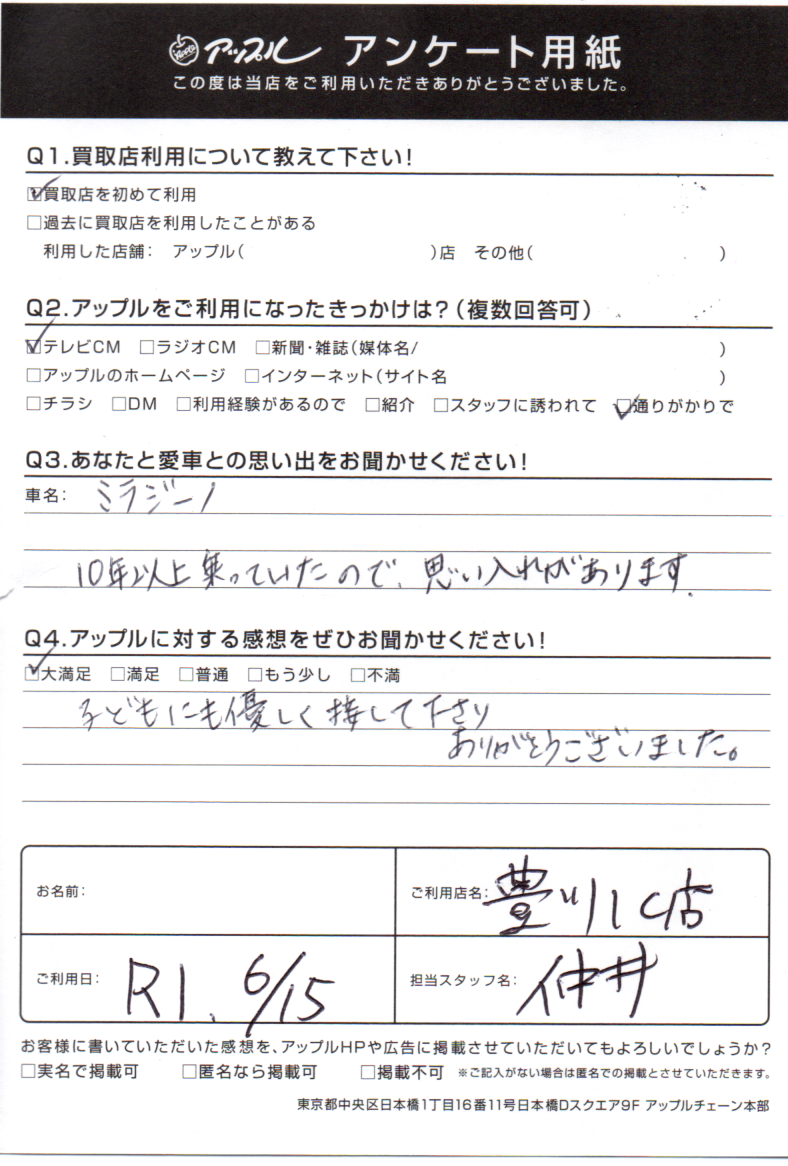 Apple アップル アンケート用紙
この度は当店をご利用いただきありがとうございました。
Q1.買取店利用について教えて下さい!
☑買取店を初めて利用
□過去に買取店を利用したことがある
利用した店舗: アップル( )店 その他( )
Q2.アップルをご利用になったきっかけは?(複数回答可)
☑テレビCM □ラジオCM □新聞・雑誌(媒体名/ )
□アップルのホームページ □インターネット(サイト名 )
□チラシ □DM □利用経験があるので □紹介 □スタッフに誘われて ☑通りがかりで
Q3.あなたと愛車との思い出をお聞かせください!
車名: ミラジーノ
10年以上乗っていたので、思い入れがあります.
Q4.アップルに対する感想をぜひお聞かせください!
☑大満足 □満足 □普通 □もう少し □不満
子どもにも優しく接して下さり
ありがとうございました。
お名前:
ご利用店名: 豊川IC店
ご利用日: R1. 6/15
担当スタッフ名: 仲井
お客様に書いていただいた感想を、アップルHPや広告に掲載させていただいてもよろしいでしょうか?
□実名で掲載可 □匿名なら掲載可 □掲載不可 ※ご記入がない場合は匿名での掲載とさせていただきます。
東京都中央区日本橋1丁目16番11号日本橋Dスクエア9F アップルチェーン本部